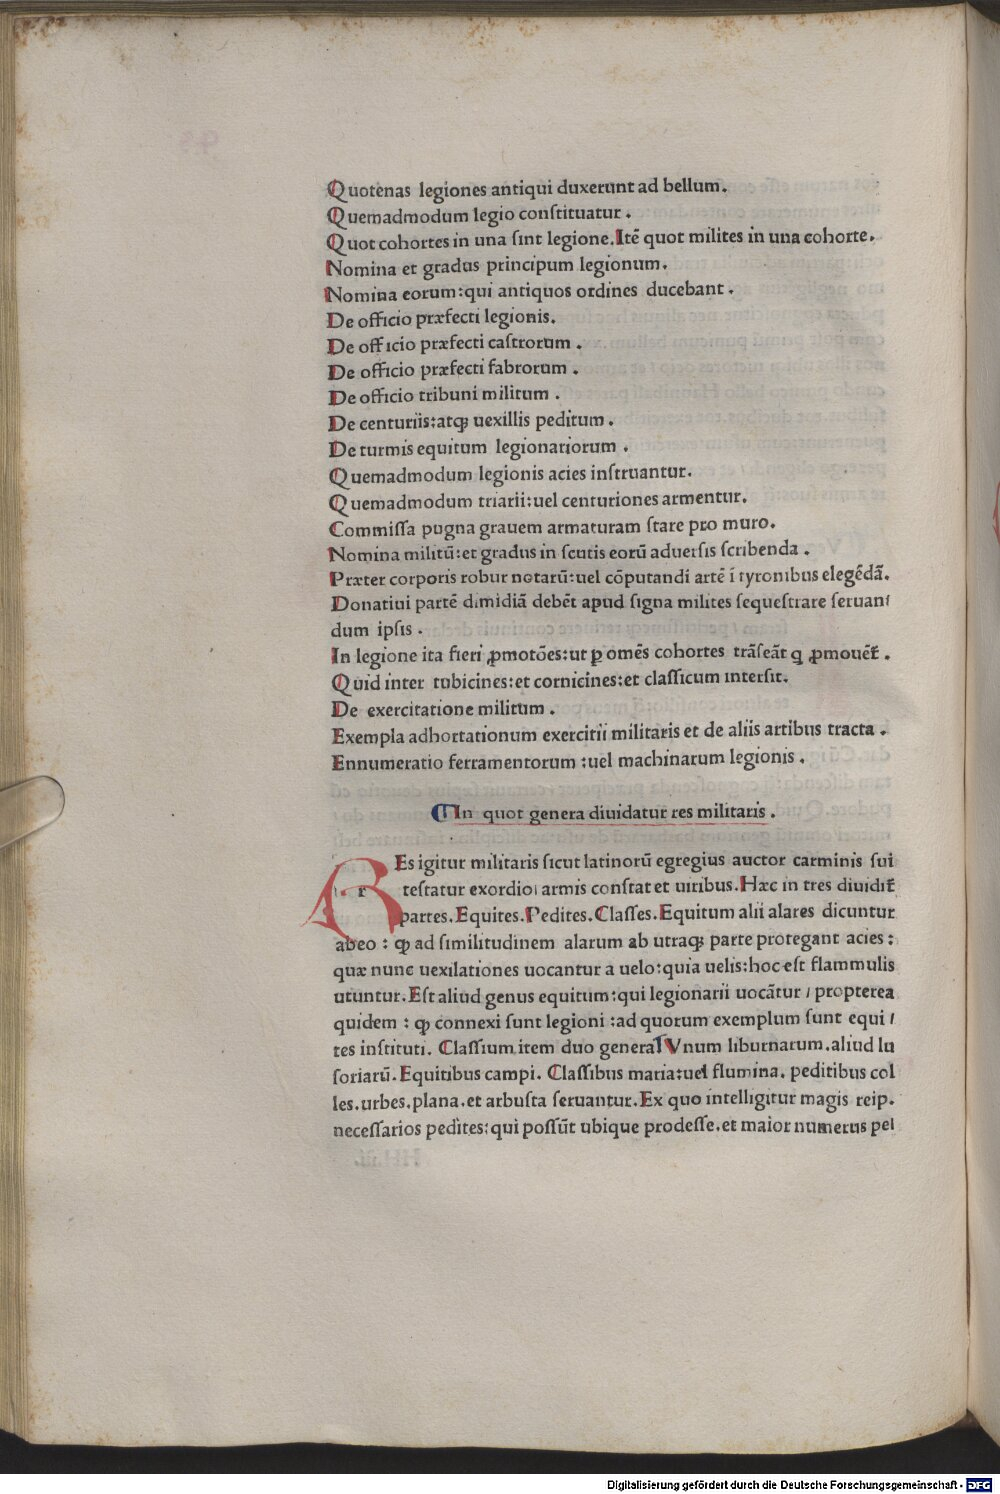 Quotenas legiones antiqui duxerunt ad bellum.
Quemadmodum legio conſtituatur .
Quot cohortes in una ſint legione.Itē quot milites in una cohorte.
Nomina et gradus principum legionum.
Nomina eorum:qui antiquos ordines ducebant .
De officio præfecti legionis.
De officio præfecti caſtrorum .
De officio præfecti fabrorum .
De officio tribuni militum .
De centuriis:atqꝫ uexillis peditum .
De turmis equitum legionariorum .
Quemadmodum legionis acies inſtruantur.
Quemadmodum triarii:uel centuriones armentur.
Commiſſa pugna grauem armaturam ſtare pro muro.
Nomina militū:et gradus in ſcutis eorū aduerſis ſcribenda .
Præter corporis robur notarū:uel cōputandi artē ī tyronibus elegēdā.
Donatiui partē dimidiā debēt apud ſigna milites ſequeſtrare ſeruan/
dum ipſis .
In legione ita fieri ꝓmotōes:ut ꝑ omēs cohortes trāſeāt q ꝓmouēt̄ .
Quid inter tubicines:et cornicines:et claſſicum interſit.
De exercitatione militum .
Exempla adhortationum exercitii militaris et de aliis artibus tracta .
Ennumeratio ferramentorum :uel machinarum legionis .
In quot genera diuidatur res militaris .
REs igitur militaris ſicut latinorū egregius auctor carminis ſui
teſtatur exordio/ armis conſtat et uiribus.Hæc in tres diuidit̄
partes.Equites.Pedites.Claſſes.Equitum alii alares dicuntur
abeo : ꝙ ad ſimilitudinem alarum ab utraqꝫ parte protegant acies:
quæ nunc uexilationes uocantur a uelo:quia uelis:hoc eſt flammulis
utuntur.Eſt aliud genus equitum:qui legionarii uocātur / propterea
quidem : ꝙ connexi ſunt legioni :ad quorum exemplum ſunt equi/
tes inſtituti. Claſſium item duo genera Vnum liburnarum.aliud lu
ſoriarū.Equitibus campi. Claſſibus maria:uel flumina. peditibus col
les.urbes.plana.et arbuſta ſeruantur.Ex quo intelligitur magis reip.
neceſſarios pedites:qui poſſūt ubique prodeſſe.et maior numerus pe/
Digitalisierung gefördert durch die Deutsche Forschungsgemeinschaft - DFG